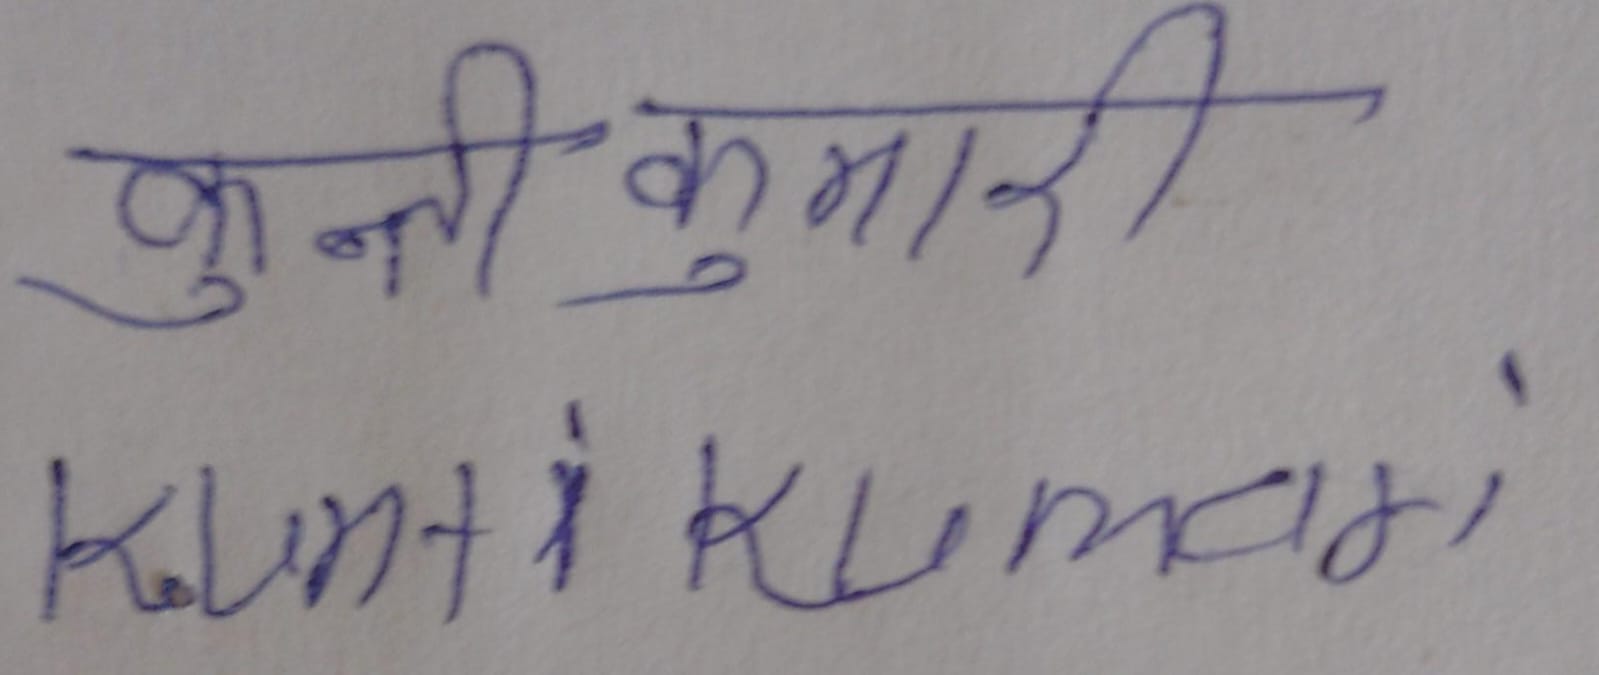 कुन्ती कुमारी
Kunti Kumari